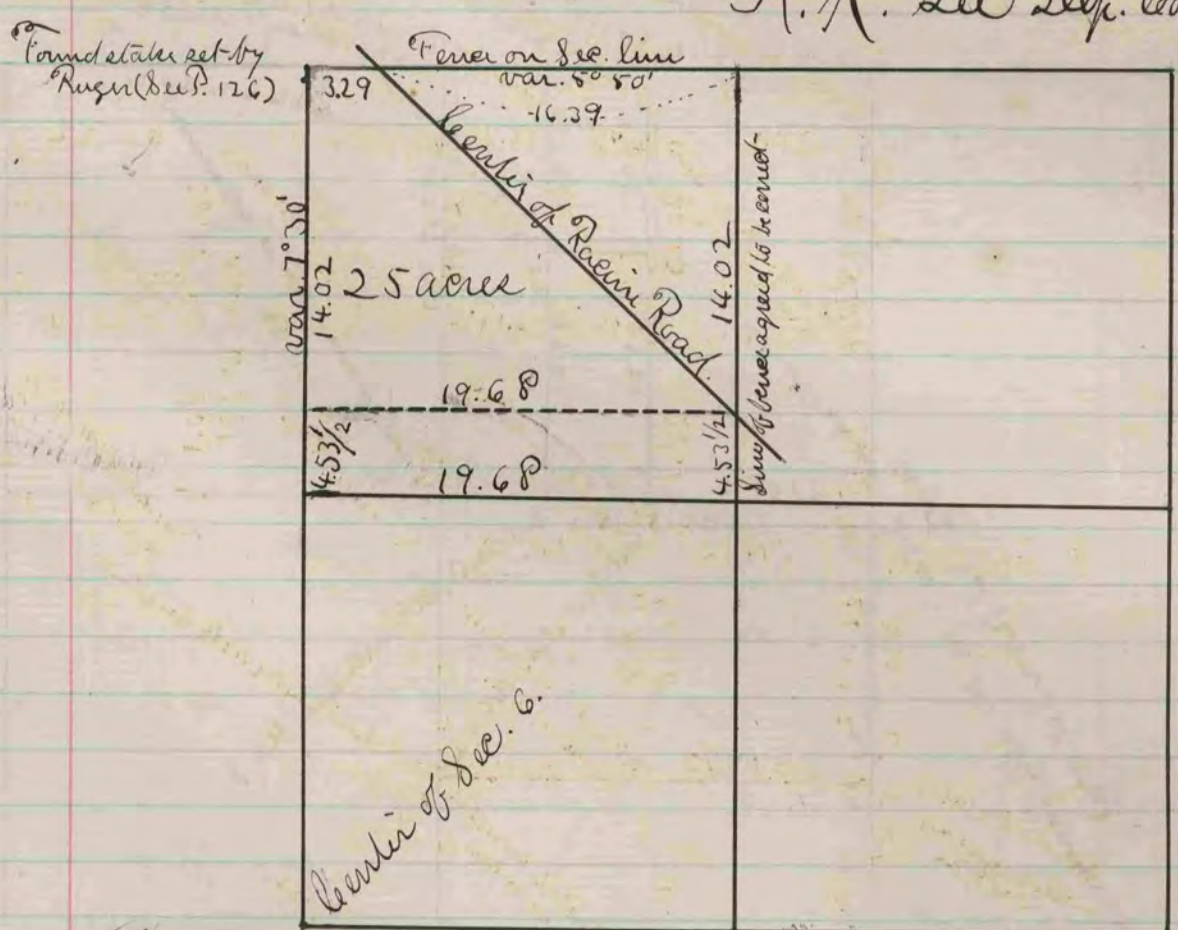 Found stake set by
Ruger (See P. 126)
Fence on Sec. line
var. 5° 50'
3.29
16.39
Center of Racine Road.
var. 7° 30'
14.02
25 acres
14.02
Line of fence agreed to be correct
19.68
4.53 1/2
19.68
4.53 1/2
Center of Sec. 6.